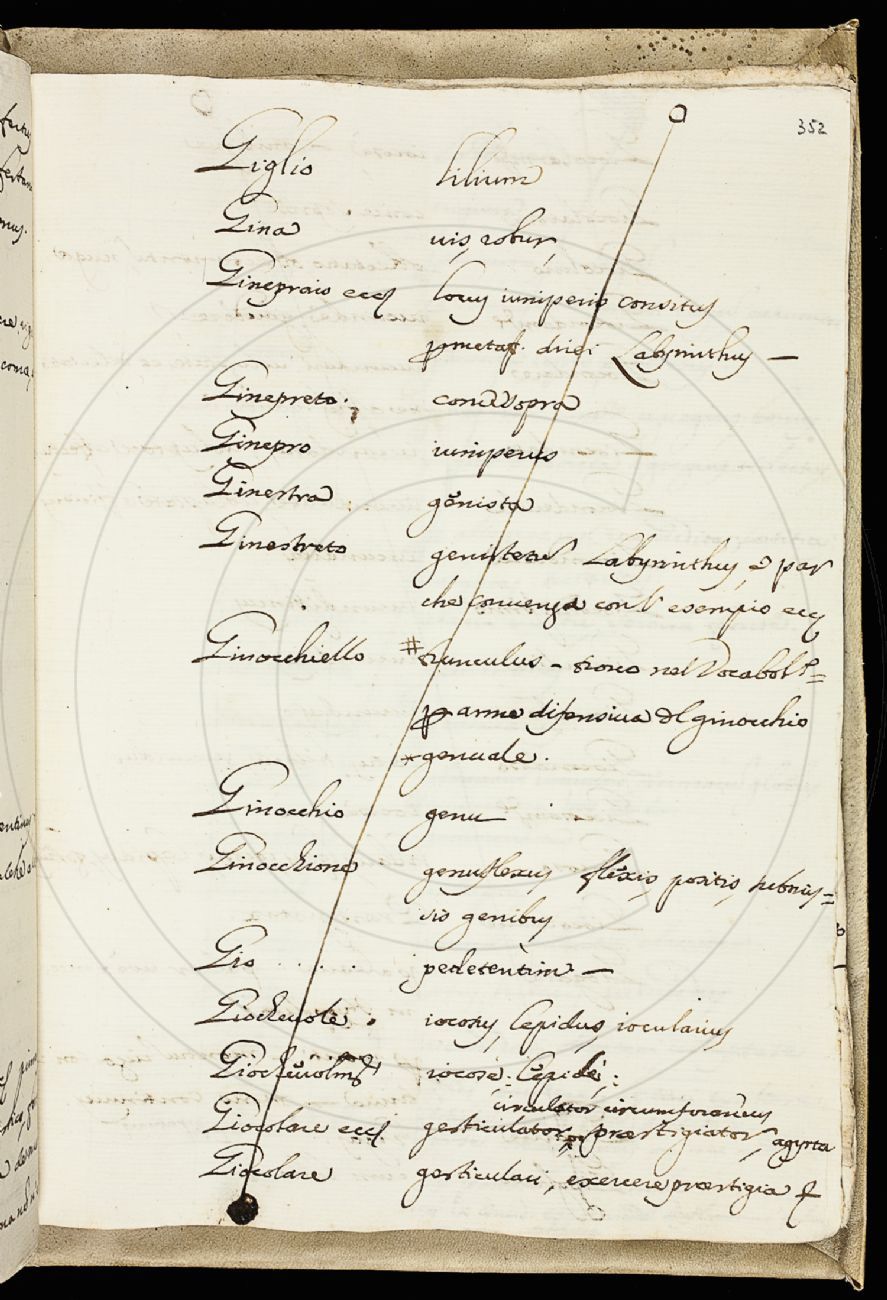 352
Giglio lilium
Gina uis, robur,
Ginepraio ecc locus iuniperis consitus
p metaf. dirsi Labyrinthus —
Ginepreto. come sopra
Ginepro iuniperus
Ginestra genista
Ginestreto Labyrinthus, e par
che conuenga con l' esempio ecc
Ginocchiello # trunculus - nel Vocabol
p arme difensiua dl ginocchio
* genuale.
Ginocchio genu
Ginocchione genuflexus flexis, positis,
sis genibus
Gio . . . . pedetentim —
Giocheuole. iocosus, lepidus, iocularius
iocosè: lepidè:
circulator circumforaneus
Giocolare ecc. gesticulator, praestigiator, agyrta
Giocolare gesticulari, exercere praestigia